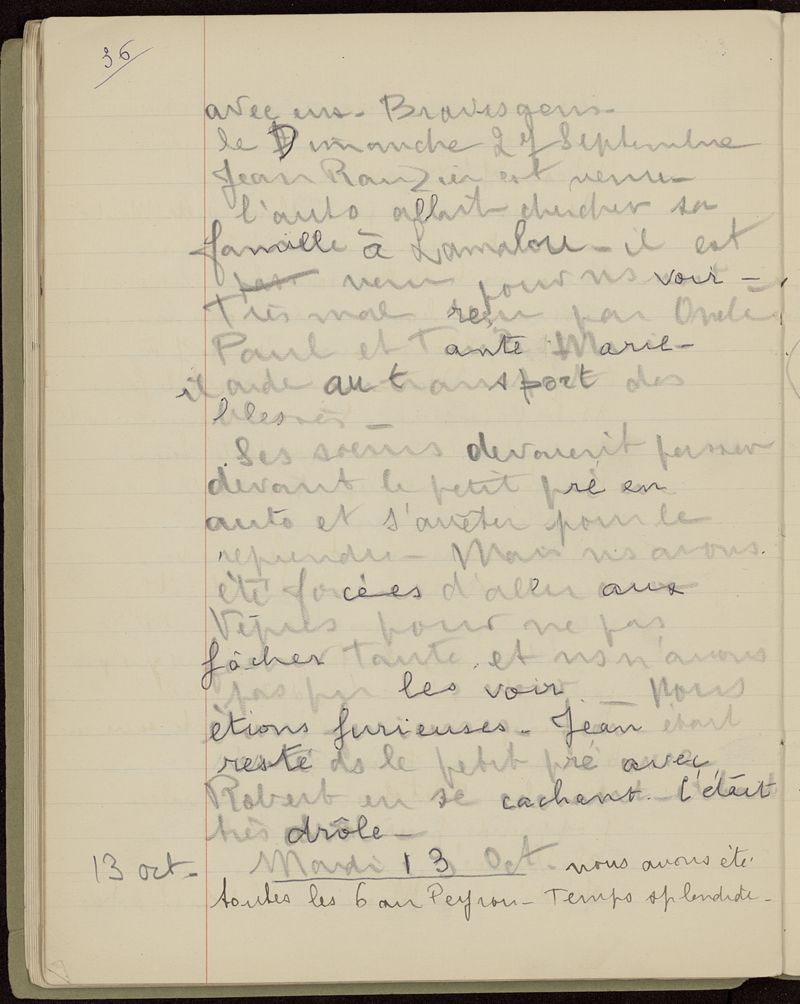 36
avec eux - Braves gens -
le Dimanche 27 Septembre
Jean Rauzier est venu -
l'auto allait chercher sa
famille à Lamalou - il est
venu pour ns voir -
Très mal reçu par Oncle
Paul et Tante Marie -
il aide au transport des
blessés -
Ses soeurs devaient passer
devant le petit pré en
auto et s'arrêter pour le
reprendre - Mais ns avons
été forcées d'aller aux
Vêpres pour ne pas
fâcher Tante, et ns n'avons
pas pu les voir - Nous
étions furieuses - Jean était
resté ds le petit pré avec
Robert en se cachant - C'était
très drôle -
13 oct - Mardi 13 Oct - nous avons été
toutes les 6 au Peyrou - Temps splendide -